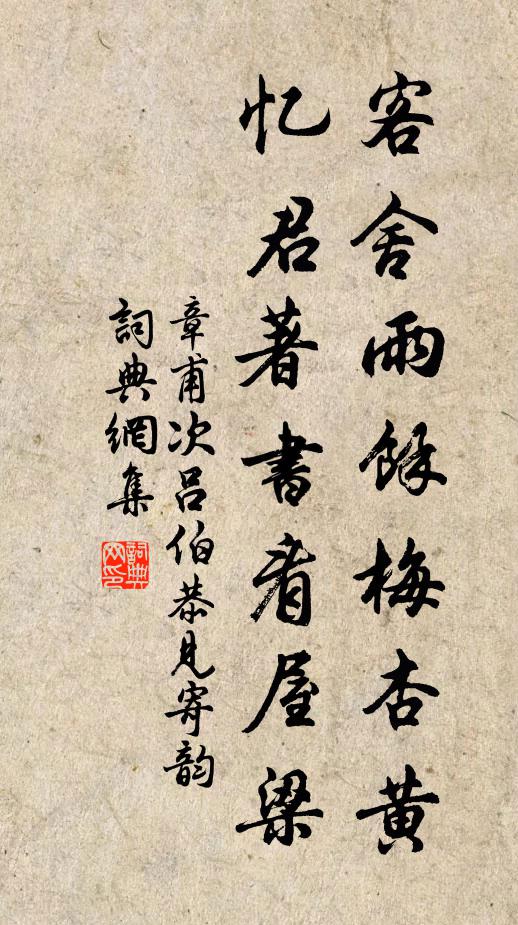 客舍雨餘梅杏黄
忆君著書看屋梁
章甫次吕伯恭見寄韵
詞典網集
詞典网印